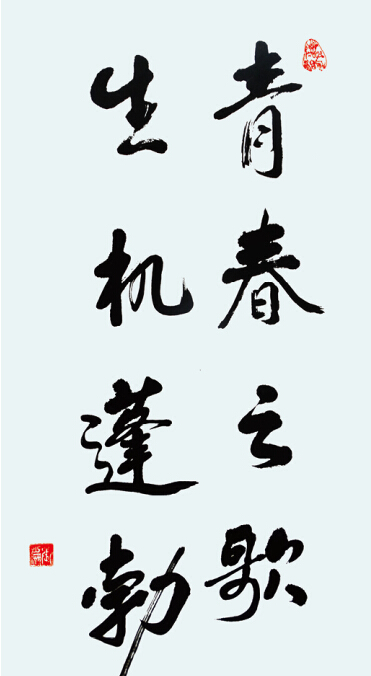 青春之歌
生机蓬勃